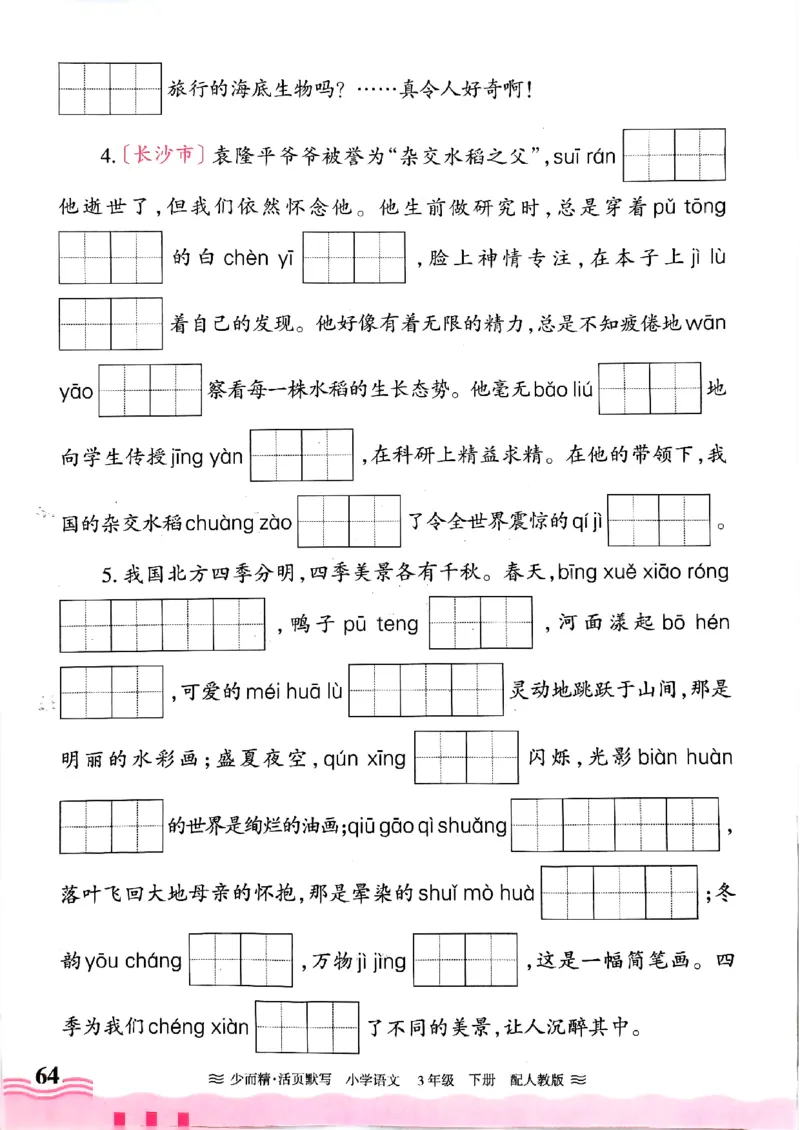 旅行的海底生物吗？……真令人好奇啊！
4.〔长沙市〕袁隆平爷爷被誉为“杂交水稻之父”，suī rán
他逝世了，但我们依然怀念他。他生前做研究时，总是穿着pǔ tōng
的白 chèn yī ，脸上神情专注，在本子上 jì lù
着自己的发现。他好像有着无限的精力，总是不知疲倦地wān
yāo 察看每一株水稻的生长态势。他毫无bǎo liú 地
向学生传授jīng yàn ，在科研上精益求精。在他的带领下，我
国的杂交水稻chuàng zào 了令全世界震惊的qí jì 。
5. 我国北方四季分明，四季美景各有千秋。春天，bīng xuě xiāo róng
，鸭子 pū teng ，河面漾起 bō hén
，可爱的 méi huā lù 灵动地跳跃于山间，那是
明丽的水彩画；盛夏夜空，qún xīng 闪烁，光影 biàn huàn
的世界是绚烂的油画；qiū gāo qì shuǎng ，
落叶飞回大地母亲的怀抱，那是晕染的 shuǐ mò huà ；冬
韵yōu cháng ，万物 jì jìng ，这是一幅简笔画。四
季为我们 chéng xiàn 了不同的美景，让人沉醉其中。
64 少而精·活页默写 小学语文 3年级 下册 配人教版